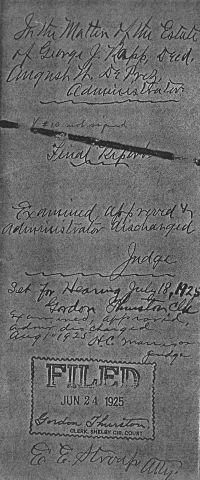 In the Matter of the Estate
of George J. Kapp, Decd.
August W. De Prez,
Administrator
not signed
Final Report
Examined, Approved &
Administrator discharged
Judge
Set for Hearing July 18, 1925
Gordon Thurston Clk
Examined, approved,
admr discharged
Aug 1" 1925 H.C. Morrison
Judge
FILED
JUN 24 1925
Gordon Thurston
CLERK, SHELBY CIR. COURT
E. E. Stroup Atty